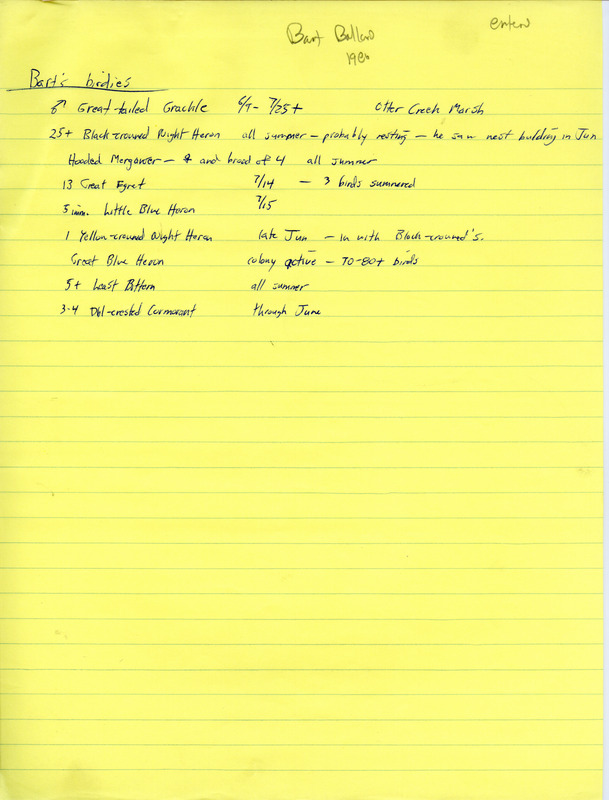 Bart Ballard
enters
1980
Bart's birdies
♂ Great-tailed Grackle 6/7- 7/25+ Otter Creek Marsh
25+ Black-crowned Night Heron all summer - probably nesting - he saw nest building in Jun
Hooded Merganser - ♀ and brood of 4 all summer
13 Great Egret 7/14 - 3 birds summered
5 imm. Little Blue Heron 7/15
1 Yellow-crowned Night Heron late Jun - in with Black-crowned's.
Great Blue Heron colony active - 70-80+ birds
5+ Least Bittern all summer
3-4 Dbl-crested Cormorant through June